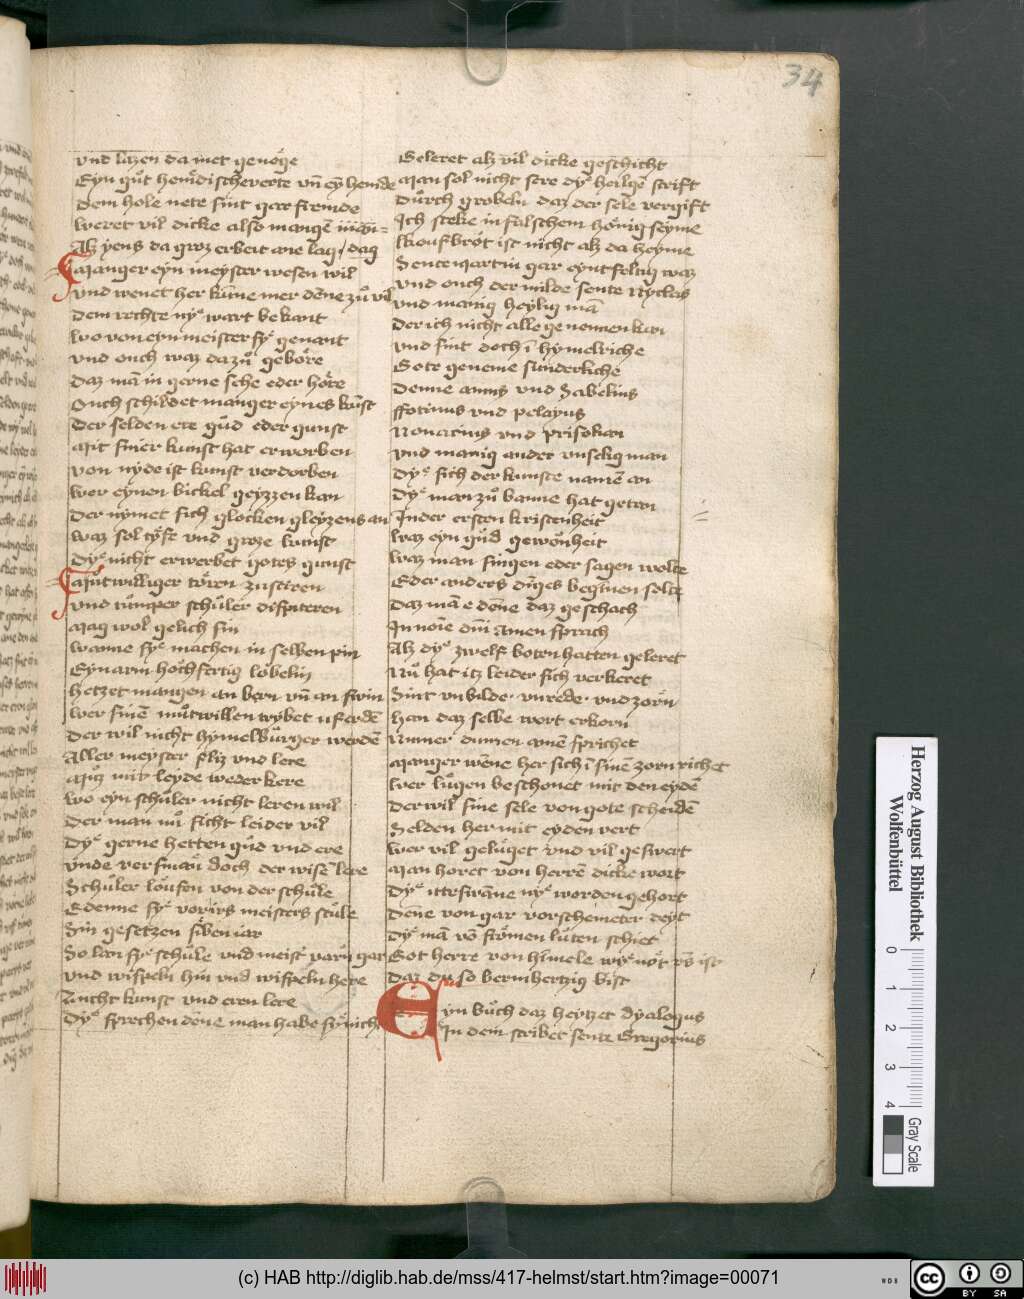 34
vnd lazen da met genoͤge
Eyn guͦt hemdischeverte vn̄ eȳ hemde
Dem hole nete sint gar fremde
Weret vil dicke also mangē
Alz yens da groz erbeit ane lag / dag
Manger eyn meyster wesen wil
vnd wenet her kūne mer dēne zuͦ vil
Dem rechte nyͤ wart bekant
Wo von eyn meister syͤ genant
vnd ouch waz dazuͦ geboͤre
Daz mā in gerne sehe eder hoͤre
Ouch schildet manger eynes kūst
Der selden ere guͦd eder gunst
Mit siner kunst hat erworben
von nyde ist kunst verdorben
Wer eynen bickel geyzzen kan
Der nymet sich glocken gleyzens an
Waz sol tyͤfe vnd groze kunst
Dyͤ nicht erwerbet gotes gunst
Muͦtwilliger toͤren zusteren
vnd rumper schuͦler disputeren
Mag wol gelich sin
Wanne syͤ machen in selben pin
Eyn arm hochfertig lobelin
Hetzet mangen an bern vn̄ an swin
Wer sinē muͦtwillen trybet uf erdē
Der wil nicht hymelbuͦrger werden
Aller meyster vliz vnd lere
Muͦz mit leyde wederkere
Wo eyn schuͦler nicht leren wil
Der man nu sicht leider vil
Dyͤ gerne hetten guͦd vnd ere
vnde versmaͤn doch der wisē lere
Schuͦler loufen von der schuͦle
E denne syͤ vor irs meisters stuͦle
Sin gesetzen siben iar
So lan syͤ schuͦle vnd meistͥ varn gar
vnd wispeln hin vnd wispeln here
Zucht kunst vnd eren lere
Dyͤ sprechen dēne man habe syͤ nicht
Geleret alz vil dicke geschicht
Man sol nicht sere dyͤ heilgē scrift
Durch grobeln daz der sele vergift
Icht steke in falschem honigseyme
Koufbrot ist nicht alz da heyme
Sente martin gar eynfeltig waz
vnd ouch der milde sente Nyclas
vnd manig heylig mā
Der ich nicht alle genennen kan
vnd sint doch ī hymelriche
Gote geneme sunderliche
Denne arrius vnd Sabelius
ffotinus vnd pelayus
Nouacius vnd priscian
vnd manig ander vnselig man
Dyͤ sich der kunste namē an
Dyͤ man zuͦ banne hat getan
In der ersten kristenheit
Waz eyn guͦd gewonheit
Waz man singen eder sagen wolte
Eder anders dīges beginen solte
Daz mā e dēne daz geschach
In noīe dn̄i Amen sprach
Alz dyͤ zwelf boten hatten geleret
Nu hat itz leider sich verkeret
Sint vnbilde · vnrede · vnd zorn
Han daz selbe wort erkorn
Numer dumen amē sprichet
Manger wēne her sich ī sinē zorn richet
Wer luͦgen beschonet mit den eydē
Der wil sine sele von gote scheidē
Selden her mit eyden vert
Wer vil geluͦget vnd vil geswert
Man horet von herrē dicke wort
Dyͤ itteswāne nyͤ worden gehort
Dēne von gar vorschemeter deyt
Dyͤ mā vō fromen luͦten schiet
Got herre von hīmele wyͤ not vͥs ist
Daz du so bermhertzig bist
Eyn buͦch daz heyzet dyalogus
In dem scribet sente Gregorius
Herzog August Bibliothek
Wolfenbüttel
0 1 2 3 4
Gray Scale
(c) HAB http://diglib.hab.de/mss/417-helmst/start.htm?image=00071
WDB
cc BY SA